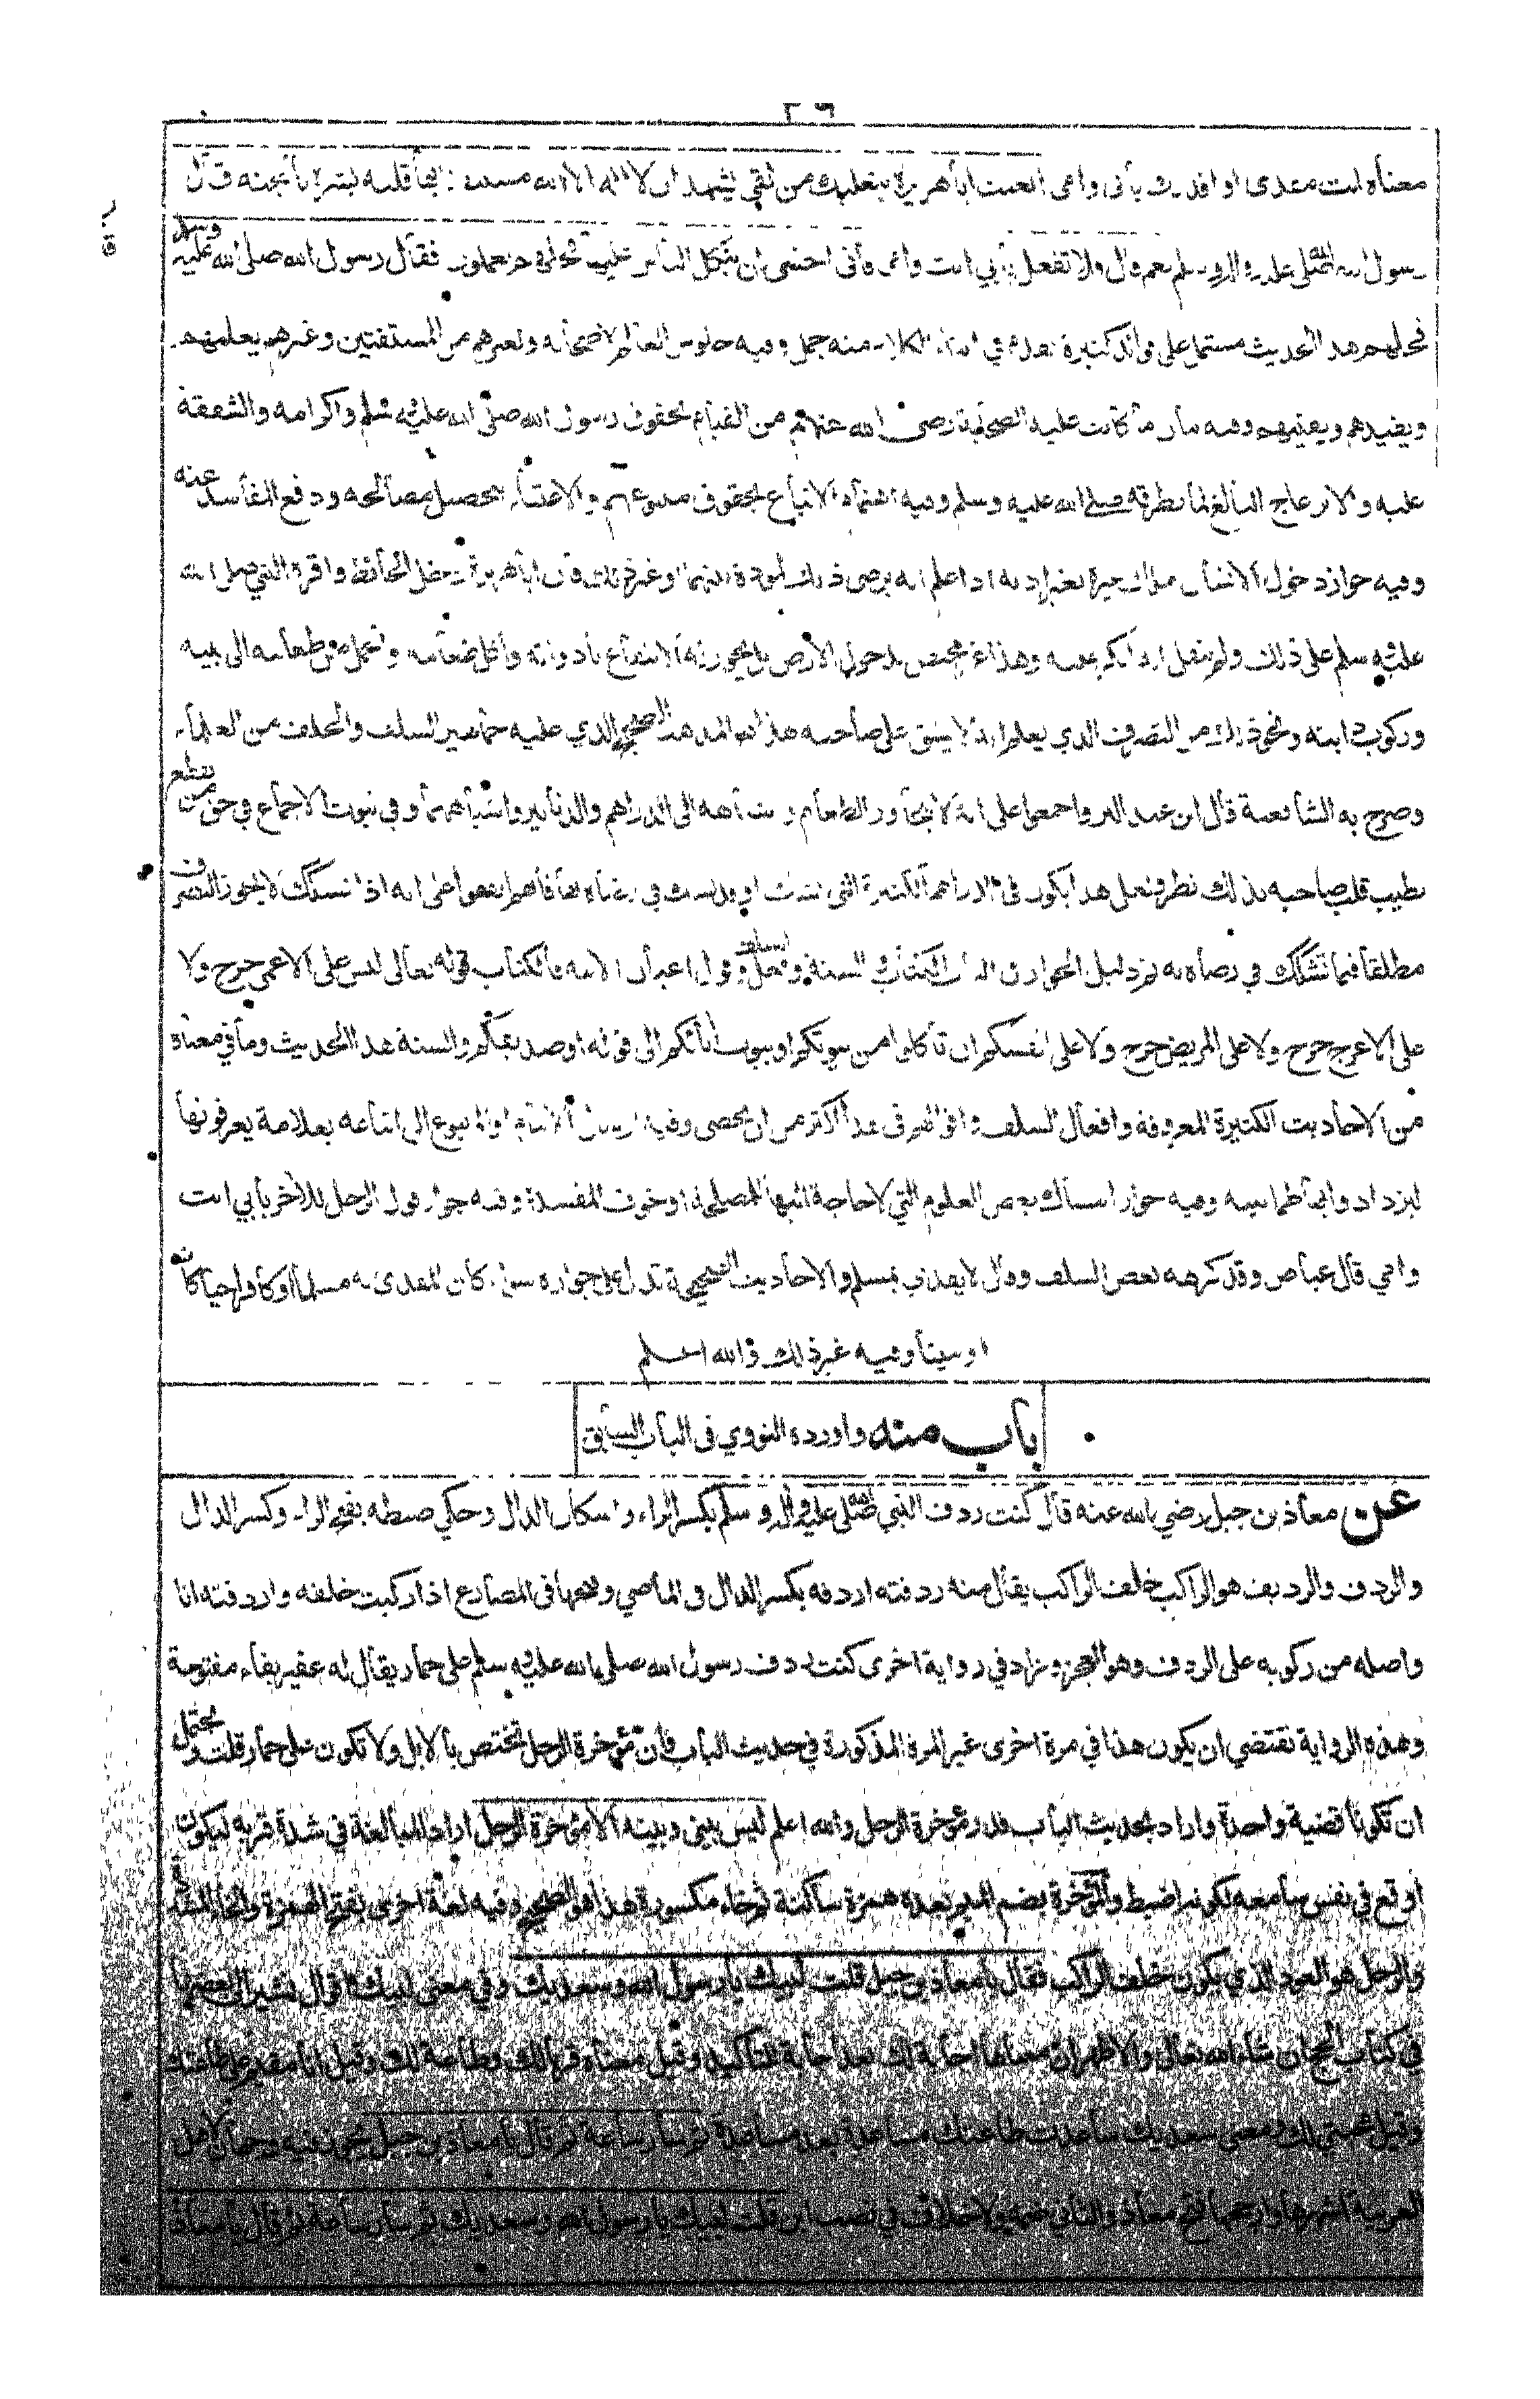 ٣٦
معناه انت مفدى او افديك بأبي وامي ابعثت ابا هريرة بنعليك من لقي يشهد ان لا اله الا الله مستيقنا بها قلبه بشره بالجنة قال
رسول الله صلى الله عليه واله وسلم نعم قال ولا تفعل بأبي انت وامي فأني اخشى ان يتكل الناس عليها فخلهم يعملون فقال رسول الله صلى الله عليه وسلم
فخلهم هذا الحديث مشتمل على فوائد كثيرة تقدم في اثناء الكلام منه جمل وفيه جلوس العالم لاصحابه ولغيرهم من المستفتين وغيرهم يعلمهم
ويفيدهم ويفتيهم وفيه بيان ما كانت عليه الصحابة رضي الله عنهم من القيام بحقوق رسول الله صلى الله عليه وسلم واكرامه والشفقة
عليه والانزعاج البالغ لما يطرقه صلى الله عليه وسلم وفيه اهتمام الاتباع بحقوق متبوعهم والاعتناء بتحصيل مصالحه ودفع المفاسد عنه
وفيه جواز دخول الانسان ملك غيره بغير اذنه اذا علم انه يرضى ذلك لمودة بينهما او غير ذلك فان ابا هريرة دخل الحائط واقره النبي صلى الله
عليه وسلم على ذلك ولم ينقل انه انكر عليه وهذا غير مختص بدخول الارض بل يجوز له الانتفاع بأدواته وأكل طعامه والحمل من طعامه الى بيته
وركوب دابته ونحو ذلك من التصرف الذي يعلم انه لا يشق على صاحبه هذا هو المذهب الصحيح الذي عليه جماهير السلف والخلف من العلماء
وصرح به الشافعية قال ابن عبد البر واجمعوا على انه لا يتجاوز الطعام واشباهه الى الدراهم والدنانير واشباههما وفي ثبوت الاجماع في حق من يقطع
بطيب قلب صاحبه بذلك نظر ولعل هذا يكون في الدراهم الكثيرة التي يشك او يشك في رضاه بها فأنهم اتفقوا على انه اذا تشكك لا يجوز التصرف
مطلقا فيما تشكك في رضاه به ثم دليل الجواز في الباب الكتاب والسنة وفعل وقول اعيان الامة فالكتاب قوله تعالى ليس على الاعمى حرج ولا
على الاعرج حرج ولا على المريض حرج ولا على انفسكم ان تأكلوا من بيوتكم او بيوت ابائكم الى قوله او صديقكم والسنة هذا الحديث وما في معناه
من الاحاديث الكثيرة المعروفة وافعال السلف واقوالهم في هذا اكثر من ان يحصى وفيه ارسال الامام او المتبوع الى اتباعه بعلامة يعرفونها
ليزدادوا بها طمانينة وفيه جواز امساك بعض العلوم التي لا حاجة اليها للمصلحة او خوف المفسدة وفيه جواز قول الرجل للاخر بأبي انت
وامي قال عياض وقد كرهه بعض السلف وقال لا يفدى بمسلم والاحاديث الصحيحة تدل على جوازه سواء كان المفدى به مسلما او كافرا حيا كان
او ميتا وفيه غير ذلك والله اعلم
باب منه واورده النووي في الباب السابق
عن معاذ بن جبل رضي الله عنه قال كنت ردف النبي صلى الله عليه وآله وسلم بكسر الراء واسكان الدال وحكي ضبطه بفتح الراء وكسر الدال
والردف والرديف هو الراكب خلف الراكب يقال منه ردفته اردفه بكسر الدال في الماضي وفتحها في المضارع اذا ركبت خلفه واردفته انا
واصله من ركوبه على الردف وهو العجز وزاد في رواية اخرى كنت ردف رسول الله صلى الله عليه وسلم على حمار يقال له عفير بفاء مفتوحة
وهذه الرواية تقتضي ان يكون هذا في مرة اخرى غير المرة المذكورة في حديث الباب فأن مؤخرة الرحل تختص بالابل ولا تكون على حمار قلت ويحتمل
ان تكونا قضية واحدة واراد بحديث الباب قدر مؤخرة الرحل والله اعلم ليس بيني وبينه الا مؤخرة الرحل اراد المبالغة في شدة قربه ليكون
اوقع في نفس سامعه لكونه اضبط والمؤخرة بضم الميم بعده همزة ساكنة ثم خاء مكسورة هذا هو الصحيح وفيه لغة اخرى بفتح الهمزة والخاء المشددة
والرحل هو العود الذي يكون خلف الراكب فقال يا معاذ بن جبل قلت لبيك يا رسول الله وسعديك وفي معنى لبيك اقوال نشير الى بعضها
في كتاب الحج ان شاء الله تعالى والاظهر ان معناها اجابة لك بعد اجابة للتأكيد وقيل معناه قربا لك وطاعة لك وقيل انا مقيم على طاعتك
وقيل محبتي لك ومعنى سعديك ساعدت طاعتك مساعدة بعد مساعدة ثم سار ساعة ثم قال يا معاذ بن جبل يجوز فيه وجهان لاهل
العربية اشهرها وارجحها فتح معاذ والثاني ضمه ولا خلاف في نصب ابن قلت لبيك يا رسول الله وسعديك ثم سار ساعة ثم قال يا معاذ